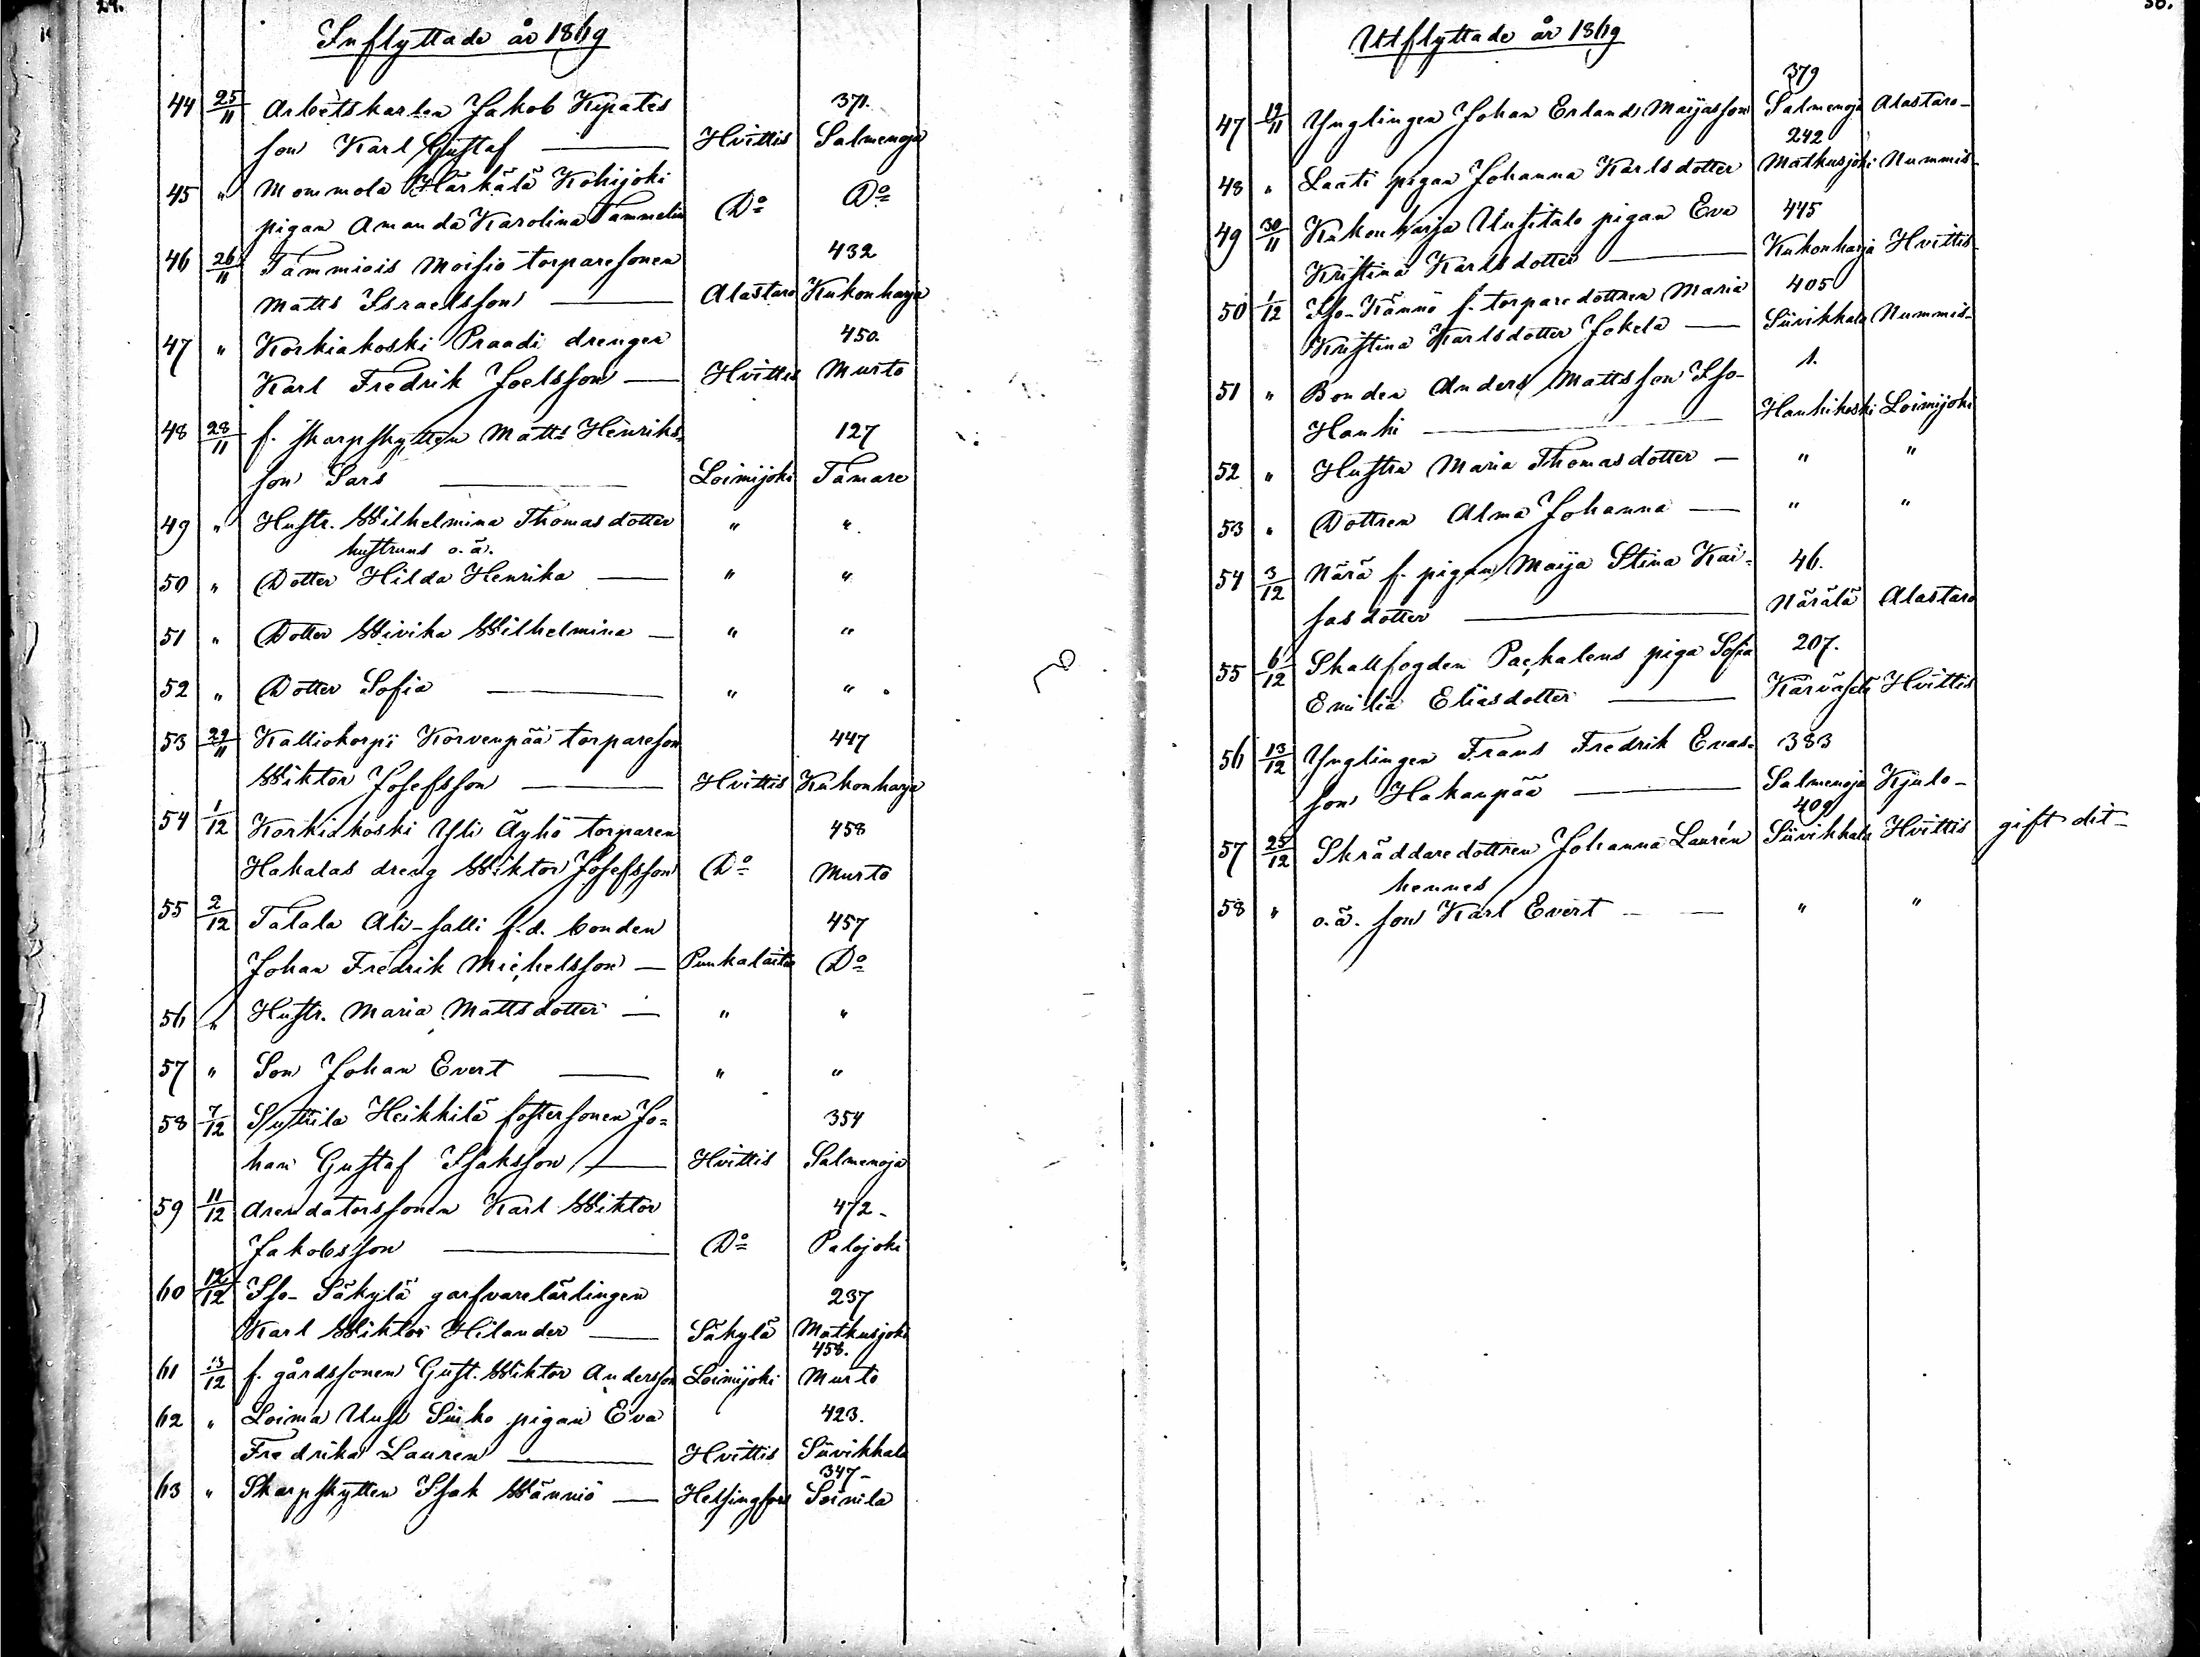 29.
Inflyttade år 1869
44 25/11 Arbetskarlen Jakob Kepates 371.
son Karl Gustaf — Hvittis Salmenoja
45 " Mommola Härkälä Kohijoki
pigan Amanda Karolina Tammelin Do Do
46 26/11 Tammiois Moisio torparesonen 432
Matts Israelsson — Alastaro Kukonharja
47 " Korkiakoski Praadi drengen 450.
Karl Fredrik Joelsson — Hvittis Murto
48 28/11 f. skarpskytten Matts Henriks- 127
son Sars — Loimijoki Tamare
49 " Hustr. Wilhelmina Thomasdotter " "
hustruns o.ä.
50 " Dotter Hilda Henrika — " "
51 " Dotter Wivika Wilhelmina — " "
52 " Dotter Sofia — " "
53 29/11 Kalliokorpi Korvenpää torpareson 447
Wiktor Josefsson — Hvittis Kukonharja
54 1/12 Korkiakoski Yli Äyhö torparen 458
Hakalas dreng Wiktor Josefsson Do Murto
55 2/12 Talala Ali-salli f.d. bonden 457
Johan Fredrik Michelsson — Punkalaitio Do
56 " Hustr. Maria Mattsdotter — " "
57 " Son Johan Evert — " "
58 7/12 Suttila Heikkilä fostersonen Jo= 354
han Gustaf Isaksson — Hvittis Salmenoja
59 11/12 Arendatorssonen Karl Wiktor 472-
Jakobsson — Do Palojoki
60 12/12 Iso-Säkylä garfvarelärlingen 237
Karl Wiktor Hilander — Säkylä Matkusjoki
458.
61 13/12 f. gårdssonen Gust. Wiktor Andersson Loimijoki Murto
62 " Loima Uusi Seiko pigan Eva 423.
Fredrika Lauren — Hvittis Siivikkala
347-
63 " Skarpskytten Isak Wänniö — Helsingfors Soinila
30.
Utflyttade år 1869
379
47 19/11 Ynglingen Johan Erland Maijasson Salmenoja Alastaro-
242
48 " Laati pigan Johanna Karlsdotter Matkusjoki Nummis-
49 30/11 Kukonharja Uusitalo pigan Eva 445
Kristina Karlsdotter — Kukonharja Hvittis-
50 1/12 Iso-Kännö f. torparedottren Maria 405
Kristina Karlsdotter Jokela — Siivikkala Nummis-
51 " Bonden Anders Mattsson Iso- 1.
Hauhi — Hanhikoski Loimijoki
52 " Hustru Maria Thomasdotter — " "
53 " Dottren Alma Johanna — " "
54 3/12 Närä f. pigan Maija Stina Kai= 46.
sasdotter — Närälä Alastaro
55 6/12 Skallfogden Packalens piga Sofia 207.
Emilia Eliasdotter — Karvasela Hvittis
56 13/12 Ynglingen Frans Fredrik Evas- 383
son Hakanpää — Salmenoja Kjulo-
409
57 25/12 Skräddaredottren Johanna Laurén Siivikkala Hvittis gift dit-
hennes
58 " o.ä. son Karl Evert — — " "